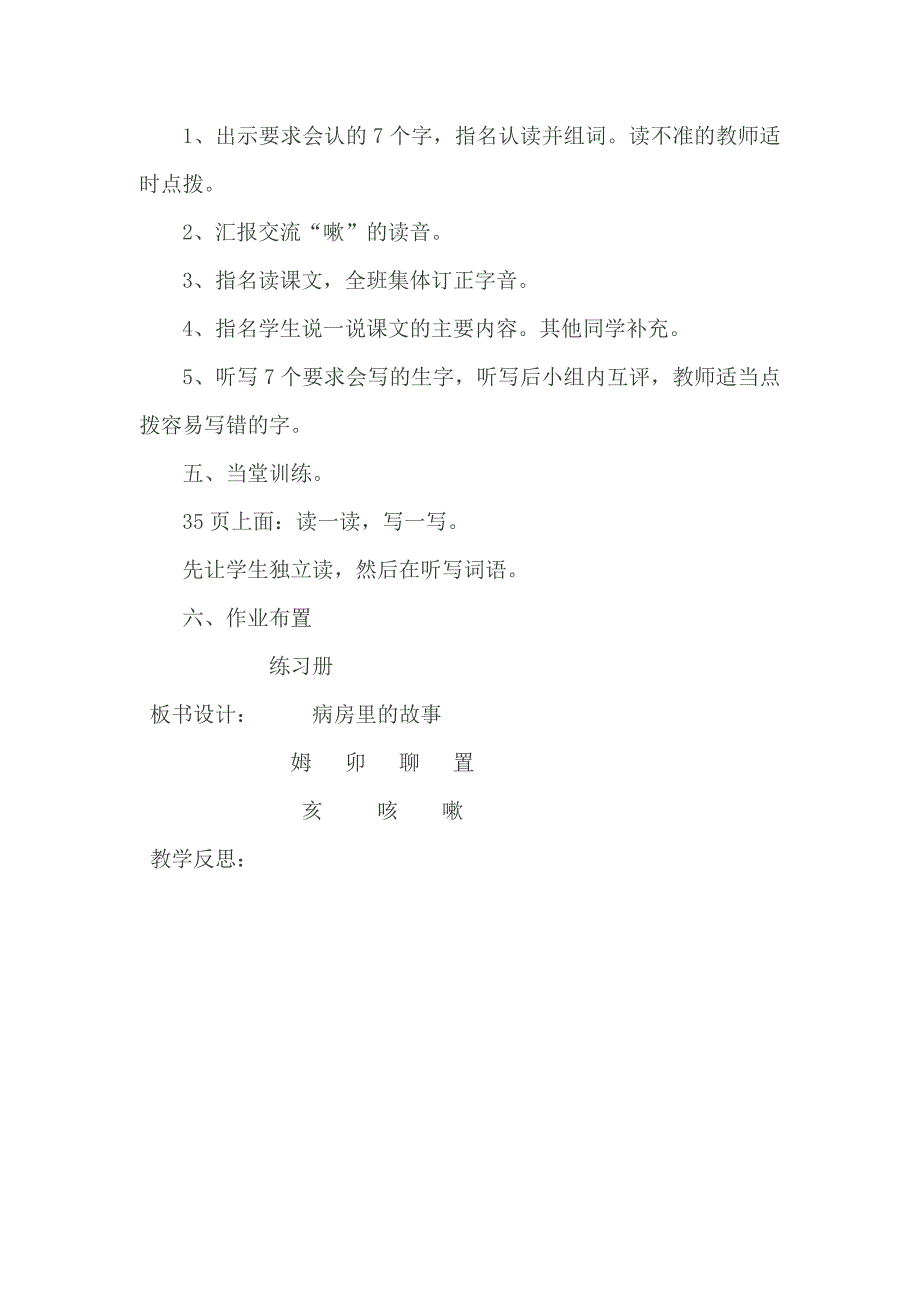 1、出示要求会认的 7 个字，指名认读并组词。读不准的教师适
时点拨。
2、汇报交流“嗽”的读音。
3、指名读课文，全班集体订正字音。
4、指名学生说一说课文的主要内容。其他同学补充。
5、听写 7 个要求会写的生字，听写后小组内互评，教师适当点
拨容易写错的字。
五、当堂训练。
35 页上面：读一读，写一写。
先让学生独立读，然后在听写词语。
六、作业布置
练习册
板书设计： 病房里的故事
姆 卯 聊 置
亥 咳 嗽
教学反思：